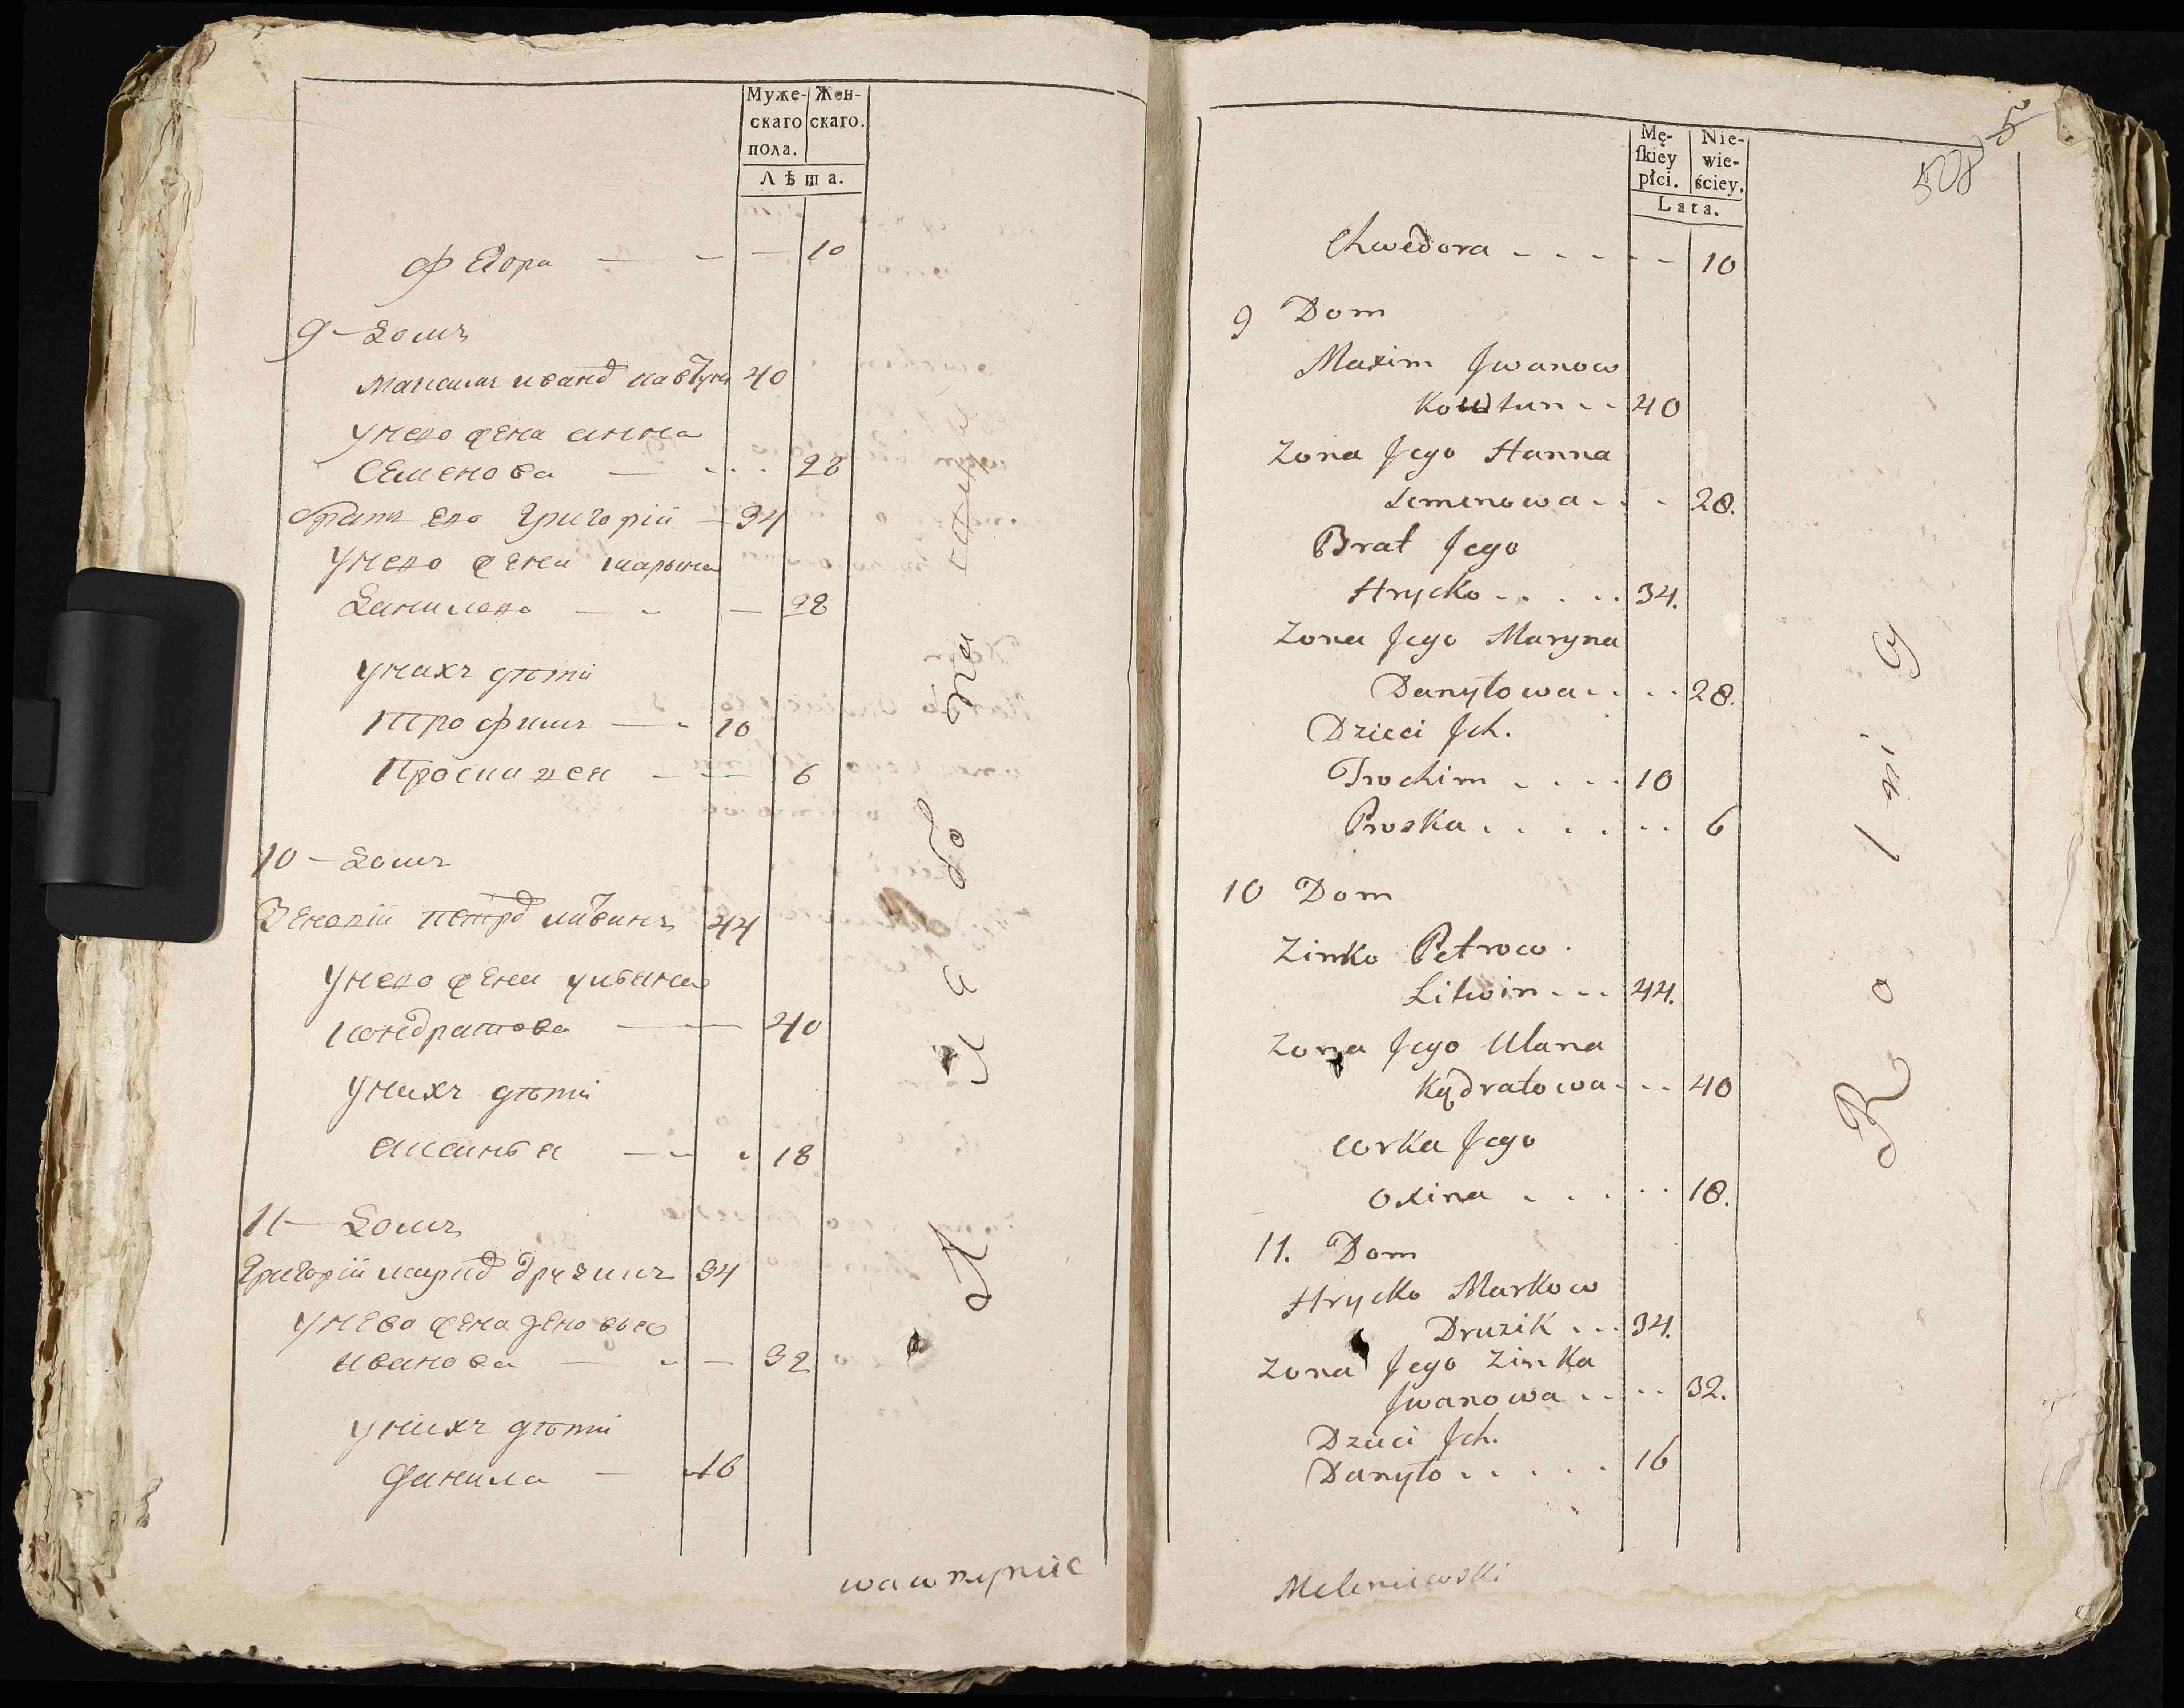 Муже- Жен-
скаго скаго.
пола.
Лѣта.
Федора — - — 10
9 — Домъ
Максимъ иванд ковтунъ 40
унего жена анна
Семенова — - . . 28
братъ его григорій — 34
унего жена марына
Данилова — - — 28
унихъ дѣти
Трофимъ — - 10
Проскажея — — 6
10 — Домъ
Зенокій петрд литвинъ 44
унего жена улияна
кондратова — — 40
унихъ дѣти
аксинья — - - 18
11 — Домъ
григорій маркд друзикъ 34
унево жена зеновья
иванова — - — 32
унихъ дѣти
Данила — 16
wawrzyniec
Mę- Nie-
ſkiey wie-
płci. ściey.
Lata.
508 5
Chwedora - - - - - 10
9 Dom
Maxim Jwanow
Kowtun - - 40
Zona Jego Hanna
Semenowa - - - 28.
Brat Jego
Hrycko - . . . . 34.
Zona Jego Maryna
Danyłowa . . . . 28.
Dzieci Jch.
Trochim . . . . 10
Proska . . . . . . 6
10 Dom
Zinko Petrow .
Litwin - - - 44.
Zona Jego Ulana
Kądratowa - - - 40
corka Jego
oxina . . . . . 18.
11. Dom
Hrycko Markow
Druzik . . . 34.
Zona Jego Zinka
Jwanowa . . . . 32.
Dzieci Jch.
Danyło . . . . . 16
Rolnig
Meleniewski